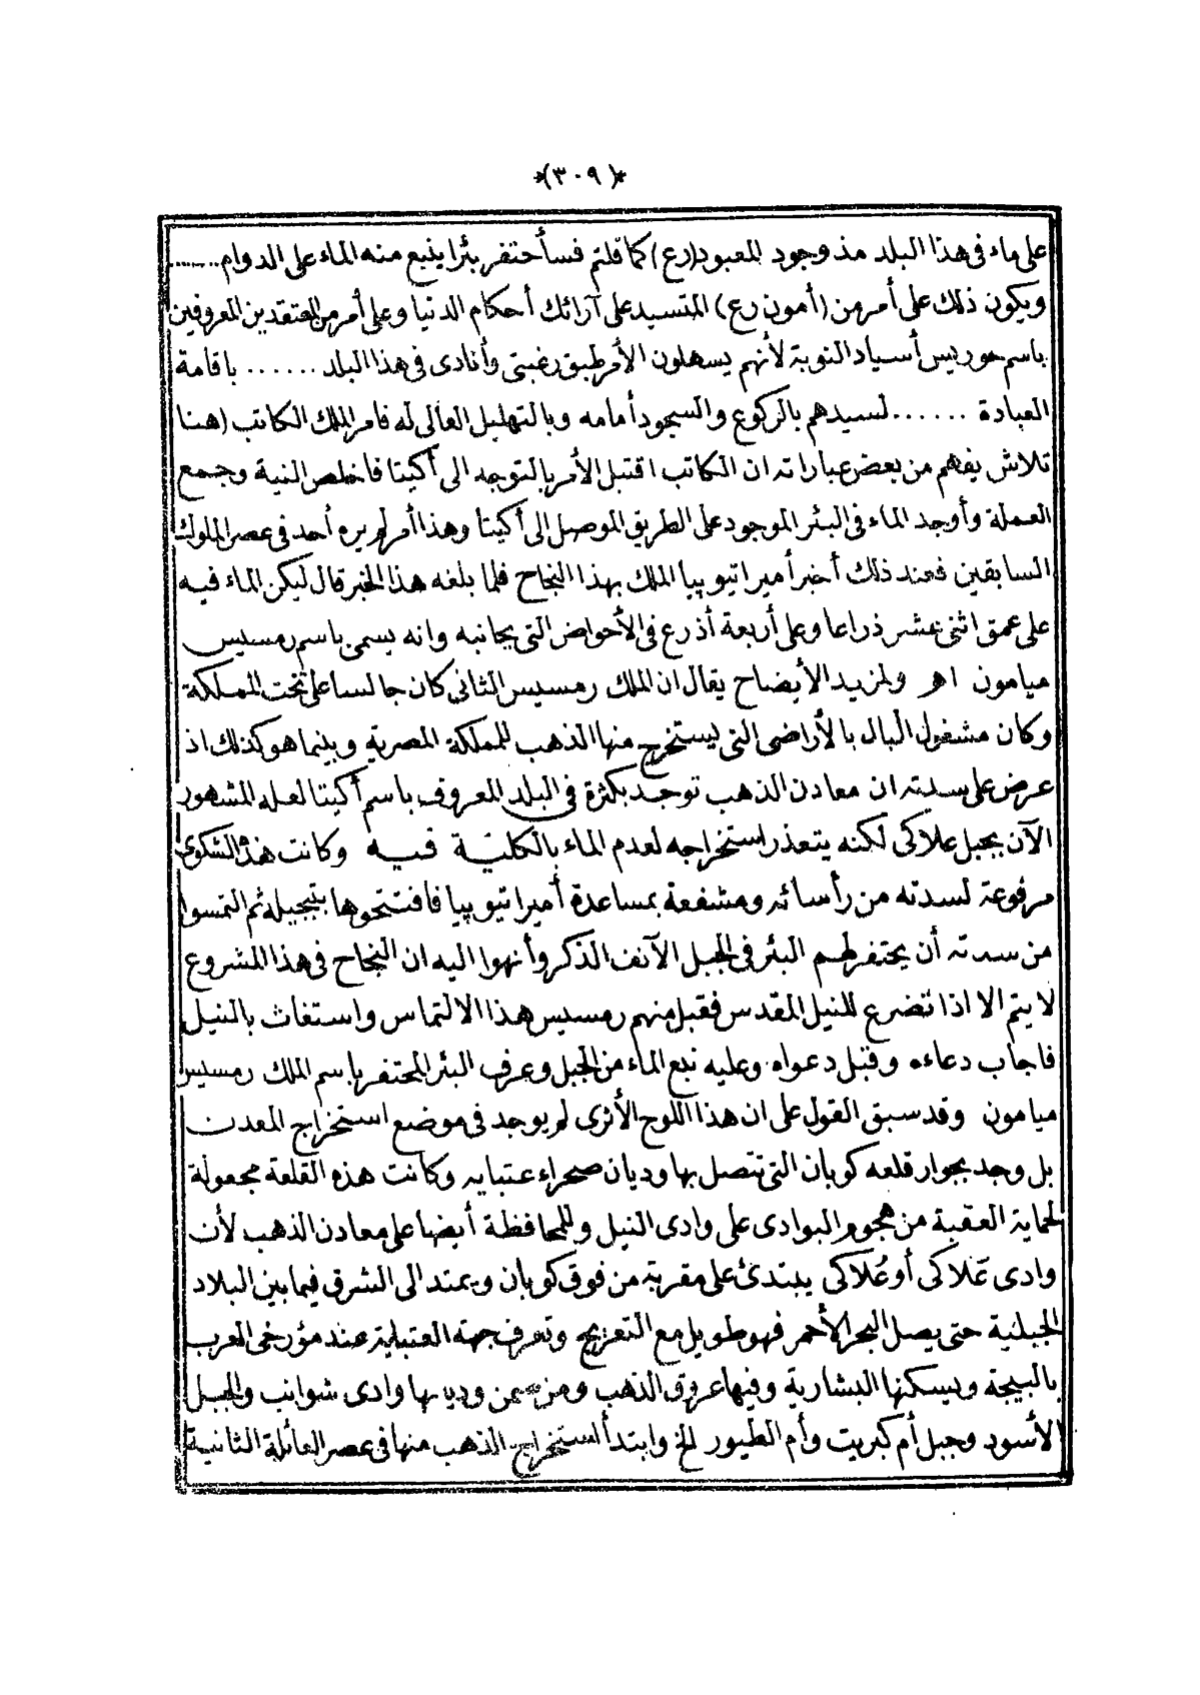 *(٣٠٩)*
على ماء فى هذا البلد مذ وجود المعبود (رع) كما قلتم فسأحتفر بئرا ينبع منه الماء على الدوام ......
ويكون ذلك على أمر من (أمون رع) المتسيد على آرائك أحكام الدنيا وعلى أمر من المعتقدين المعروفين
باسم حوريس أسياد النوبة لأنهم يسهلون الأمر طبق رغبتى وأنادى فى هذا البلد ...... باقامة
العبادة ...... لسيدهم بالركوع والسجود أمامه وبالتهليل العالى له فامر الملك الكاتب (هنا
تلاش يفهم من بعض عباراته ان الكاتب اقتبل الأمر بالتوجه الى أكيتا فاخلص النية وجمع
العملة وأوجد الماء فى البئر الموجود على الطريق الموصل الى أكيتا وهذا أمر لم يره أحد فى عصر الملوك
السابقين فعند ذلك أخبر أمير اتيوبيا الملك بهذا النجاح فلما بلغه هذا الخبر قال ليكن الماء فيه
على عمق اثنى عشر ذراعا وعلى أربعة أذرع فى الأحواض التى بجانبه وانه يسمى باسم رمسيس
ميامون اهـ ولمزيد الأيضاح يقال ان الملك رمسيس الثانى كان جالسا على تخت المملكة
وكان مشغول البال بالأراضى التى يستخرج منها الذهب للمملكة المصرية وبينما هو كذلك اذ
عرض على سدته ان معادن الذهب توجد بكثرة فى البلد المعروف باسم أكيتا لعله المشهور
الآن بجبل علاكى لكنه يتعذر استخراجه لعدم الماء بالكلية فيه وكانت هذه الشكوى
مرفوعة لسدته من رأسائه ومشفعة بمساعدة أمير اتيوبيا فافتتحوها بتبجيله ثم التمسوا
من سدته أن يحتفر لهم البئر فى الجبل الآنف الذكر وأنهوا اليه ان النجاح فى هذا المشروع
لا يتم الا اذا تضرع للنيل المقدس فقبل منهم رمسيس هذا الالتماس واستغاث بالنيل
فاجاب دعاءه وقبل دعواه وعليه نبع الماء من الجبل وعرف البئر المحتفر باسم الملك رمسيس
ميامون وقد سبق القول على ان هذا اللوح الأثرى لم يوجد فى موضع استخراج المعدن
بل وجد بجوار قلعه كوبان التى تتصل بها وديان صحراء عتبايه وكانت هذه القلعة مجعولة
لحماية العقبة من هجوم البوادى على وادى النيل وللمحافظة أيضا على معادن الذهب لأن
وادى عَلاكى أو عُلاكى يبتدئ على مقربة من فوق كوبان ويمتد الى الشرق فيما بين البلاد
الجبلية حتى يصل البحر الأحمر فهو طويل مع التعريج وتعرف جهة العتباية عند مؤرخى العرب
بالبيجة ويسكنها البشارية وفيها عروق الذهب ومن ضمن وديانها وادى شوانب والجبل
الأسود وجبل أم كبريت وأم الطيور الخ وابتدأ استخراج الذهب منها فى عصر العائلة الثانية